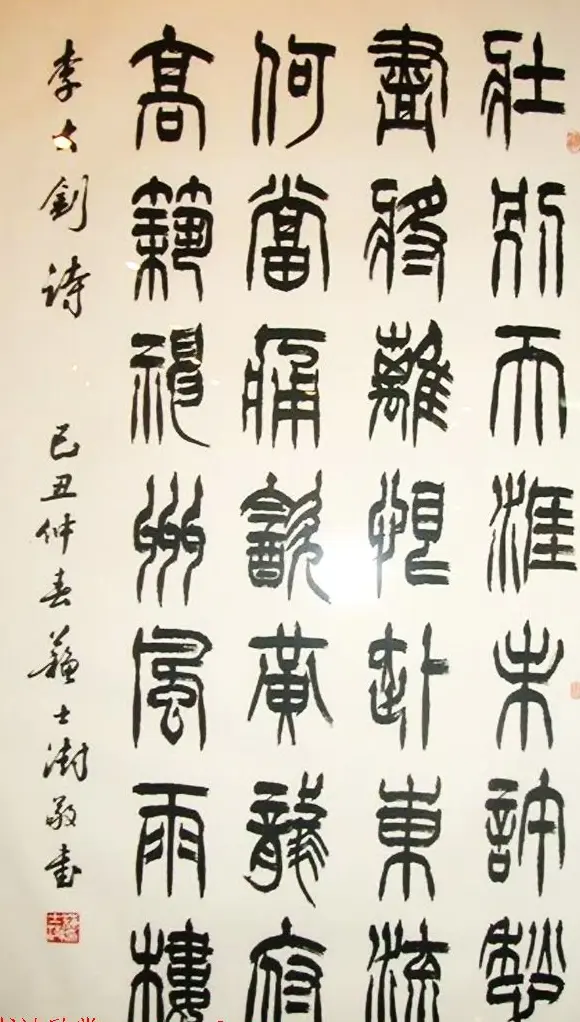 壯別天涯未許愁
盡將離恨赴東流
何當痛飲黃龍府
高築神州風雨樓
李大釗詩 己丑仲春蘇士澍敬書